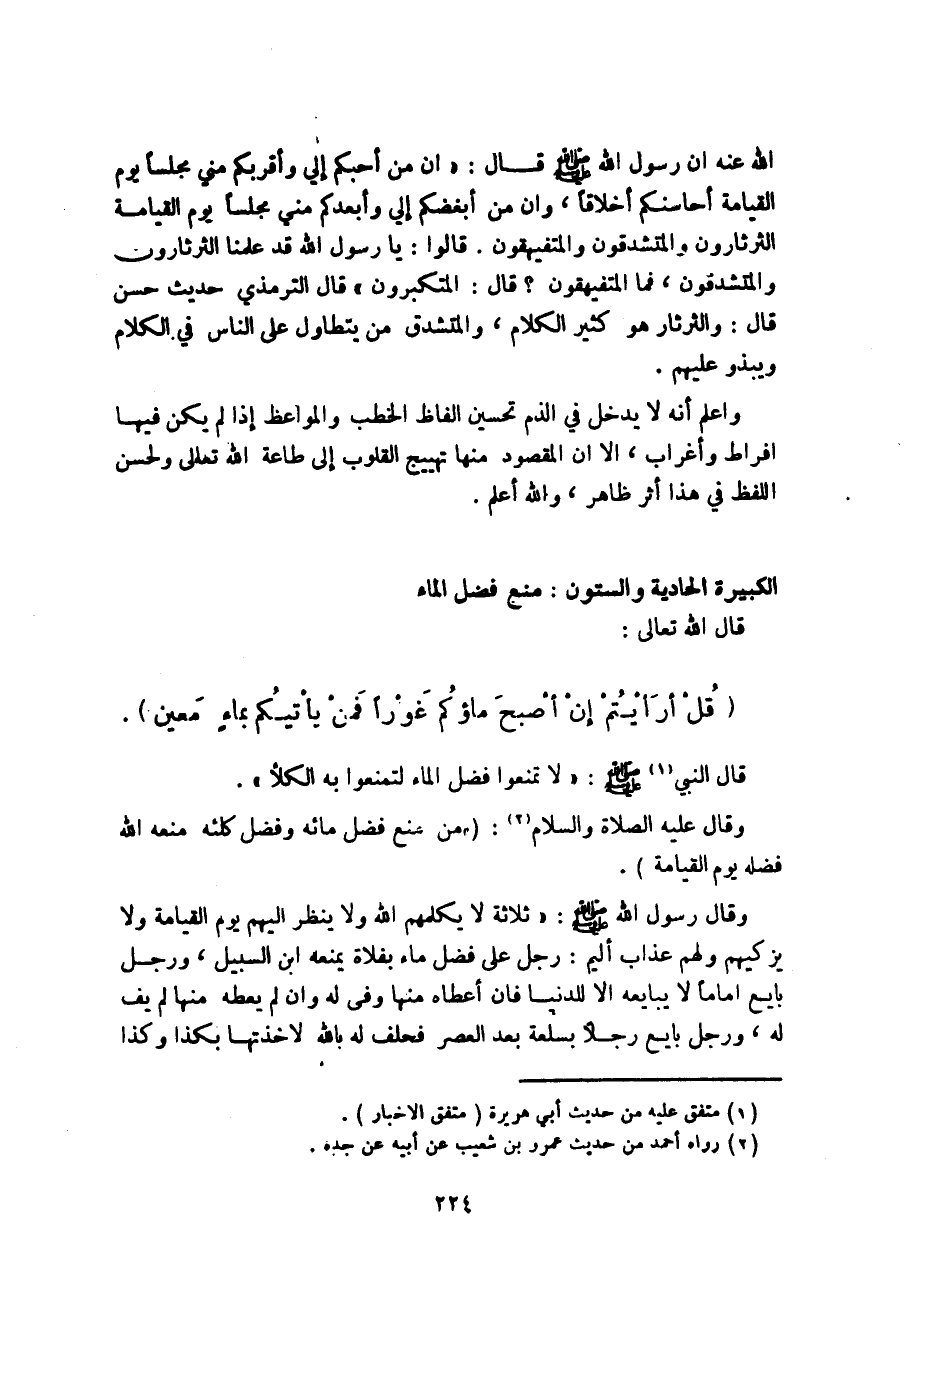 الله عنه ان رسول الله ﷺ قـــال : « ان من أحبكم إلي وأقربكم مني مجلساً يوم
القيامة أحاسنكم أخلاقاً ، وان من أبغضكم إلي وأبعدكم مني مجلساً يوم القيامـة
الثرثارون والمتشدقون والمتفيهقون . قالوا : يا رسول الله قد علمنا الثرثارون
والمتشدقون ، فما المتفيهقون ؟ قال : المتكبرون » قال الترمذي حديث حسن
قال : والثرثار هو كثير الكلام ، والمتشدق من يتطاول على الناس في الكلام
ويبذو عليهم .
واعلم أنه لا يدخل في الذم تحسين الفاظ الخطب والمواعظ إذا لم يكن فيهـا
افراط وأغراب ، الا ان المقصود منها تهييج القلوب إلى طاعة الله تعالى ولحسن
اللفظ في هذا أثر ظاهر ، والله أعلم .
الكبيرة الحادية والستون : منع فضل الماء
قال الله تعالى :
( قُلْ أرَأيْتُمْ إنْ أصْبحَ ماؤكُم غَوْراً فَمَنْ يأتيـُكم بماءٍ مَعين ) .
قال النبي(١) ﷺ : « لا تمنعوا فضل الماء لتمنعوا به الكلأ » .
وقال عليه الصلاة والسلام(٢) : ( من منع فضل مائه وفضل كلئه منعه الله
فضله يوم القيامة ) .
وقال رسول الله ﷺ : « ثلاثة لا يكلمهم الله ولا ينظر اليهم يوم القيامة ولا
يزكيهم ولهم عذاب أليم : رجل على فضل ماء بفلاة يمنعه ابن السبيل ، ورجـل
بايـع اماماً لا يبايعه الا للدنيـا فان أعطاه منها وفى له وان لم يعطه منها لم يف
له ، ورجل بايـع رجـلاً بسلعة بعد العصر فحلف له بالله لاخذتهـا بكذا وكذا
(١) متفق عليه من حديث أبي هريرة ( متفق الاخبار ) .
(٢) رواه أحمد من حديث عمرو بن شعيب عن أبيه عن جده .
٢٢٤